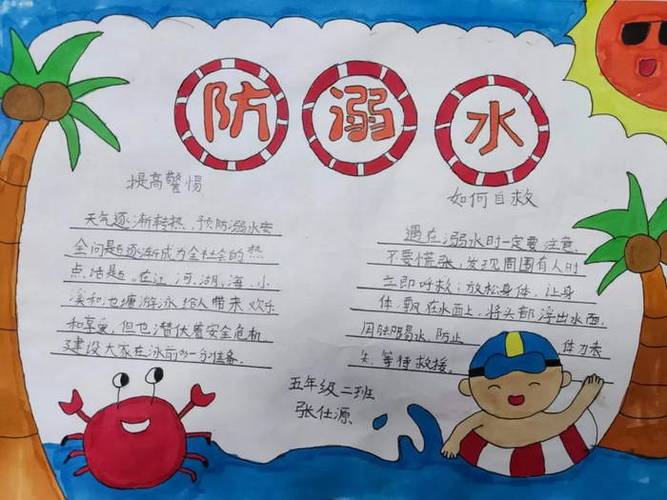 防溺水
提高警惕
天气逐渐转热,预防溺水安
全问题逐渐成为全社会的热
点话题。在江,河,湖,海,小
溪和池塘游泳给人带来欢乐
和享受,但也潜伏着安全危机
建议大家在泳前多一分准备。
如何自救
遇在溺水时一定要注意,
不要慌张,发现周围有人时
立即呼救;放松身体,让身
体飘在水面上,将头部浮出水面,
用脚踢水,防止体力丧
失,等待救援。
五年级二班
张仕源